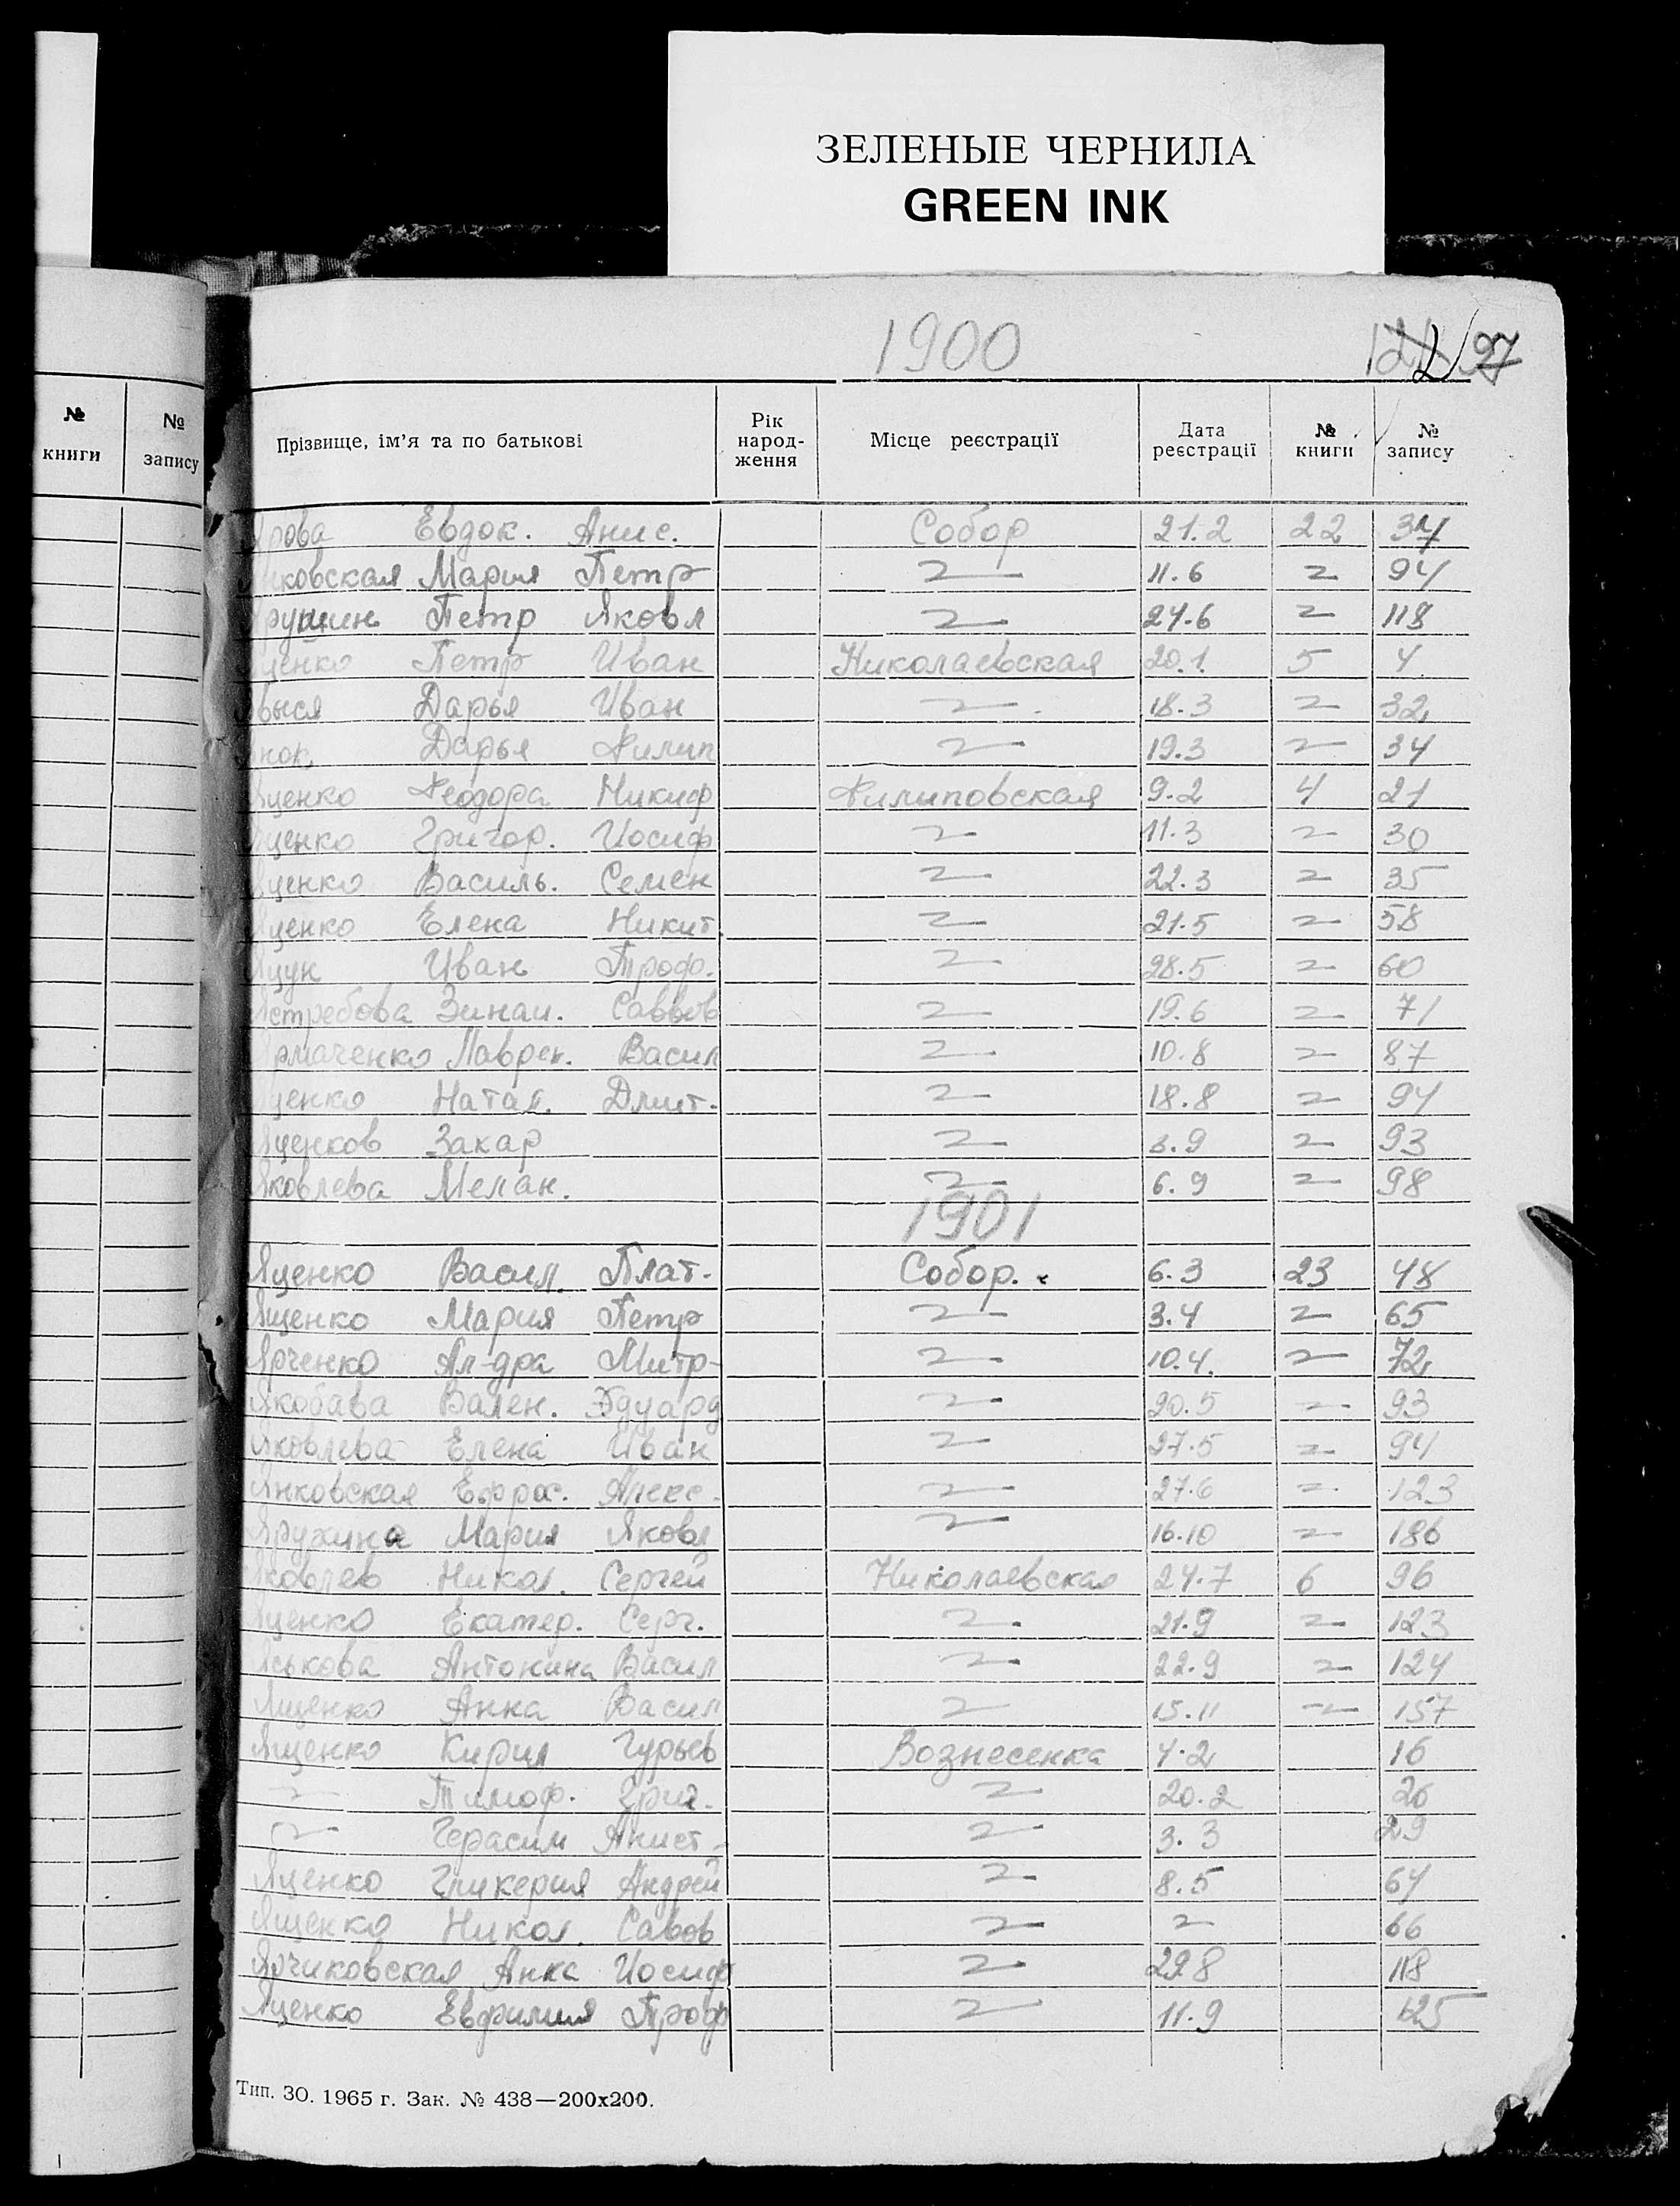 ЗЕЛЕНЫЕ ЧЕРНИЛА
GREEN INK
1900
27
№ книги № запису
Прізвище, ім'я та по батькові Рік народження Місце реєстрації Дата реєстрації № книги № запису
Ярова Евдок. Анис. Собор 21.2 22
Янковская Мария Петр 〃 11.6 〃 94
Петр Яковл 〃 24.6 〃 118
Яценко Петр Иван Николаевская 20.1. 5 4
Дарья Иван 〃 18.3 〃 32
Дарья Филип 〃 19.3 〃 34
Яценко Феодора Никиф Филиповская 9.2 4 21
Яценко Григор. Иосиф 〃 11.3 〃 30
Яценко Василь. Семен 〃 22.3 〃 35
Яценко Елена Никит. 〃 21.5 〃 58
Яцун Иван Троф. 〃 28.5 〃 60
Ястребова Зинаи. Саввов 〃 19.6 〃 71
Ярмаченко Лаврен. Васил 〃 10.8 〃 87
Яценко Натал. Дмит. 〃 18.8 〃 94
Яценков Захар 〃 3.9 〃 93
Яковлева Мелан. 〃 6.9 〃 98
1901
Яценко Васил. Плат. Собор. 6.3 23 48
Ященко Мария Петр 〃 3.4 〃 65
Ярченко Ал-дра Митр- 〃 10.4. 〃 72
Якобава Вален. Эдуард 〃 20.5 〃 93
Яковлева Елена Иван 〃 27.5 〃 94
Янковская Ефрос. Алекс. 〃 27.6 〃 123
Яружина Мария Яковл 〃 16.10 〃 186
Яковлев Никол. Сергей Николаевская 24.7 6 96
Яценко Екатер. Серг. 〃 21.9 〃 123
Яськова Антонина Васил 〃 22.9 〃 124
Ященко Анна Васил 〃 15.11 〃 157
Ященко Кирил Гурьев Вознесенка 4.2 16
〃 Тимоф. Григ. 〃 20.2 26
〃 Герасим Анист. 〃 3.3 29
Яценко Гликерия Андрей 〃 8.5 64
Ященко Никол. Савов 〃 〃 66
Ярчиковская Анна Иосиф 〃 29.8 118
Яценко Евфимия Троф 〃 11.9 125
Тип. ЗО. 1965 г. Зак. № 438—200х200.